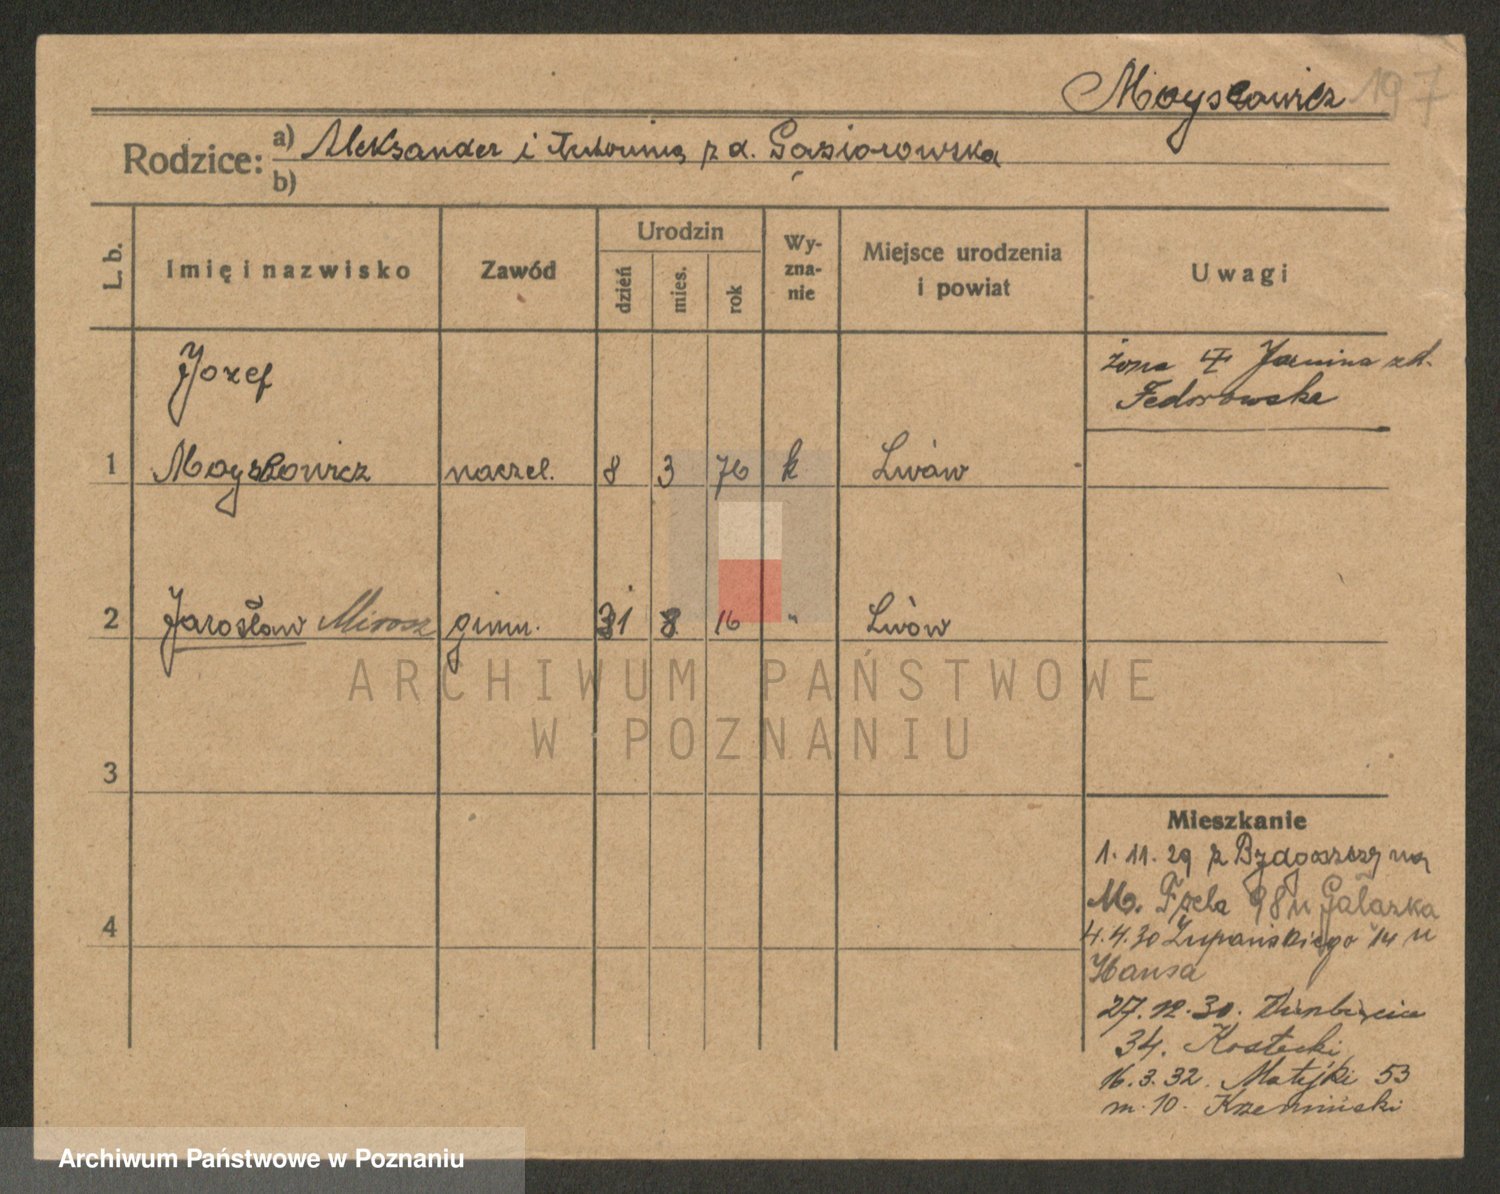 Moysowicz 197
Rodzice: a) Aleksander i Antonina z d. Gąsiorowska
b)
L. b.
Imię i nazwisko
Zawód
Urodzin
dzień
mies.
rok
Wy-
zna-
nie
Miejsce urodzenia
i powiat
Uwagi
Józef
żona Janina z d.
Fedorowska
1 naczel. 8 3 76 k Lwów
2 Jarosław Mirosz gimn. 31 8 16 " Lwów
3
4
Mieszkanie
1. 11. 29 z Bydgoszczy na
M. Focha 98 u Gałązka
4. 4. 30 Żupańskiego 14 u
Hansa
27. 12. 30.
34. Kostecki
16. 3. 32. Matejki 53
m. 10. Krzemiński
ARCHIWUM PAŃSTWOWE
W POZNANIU
Archiwum Państwowe w Poznaniu